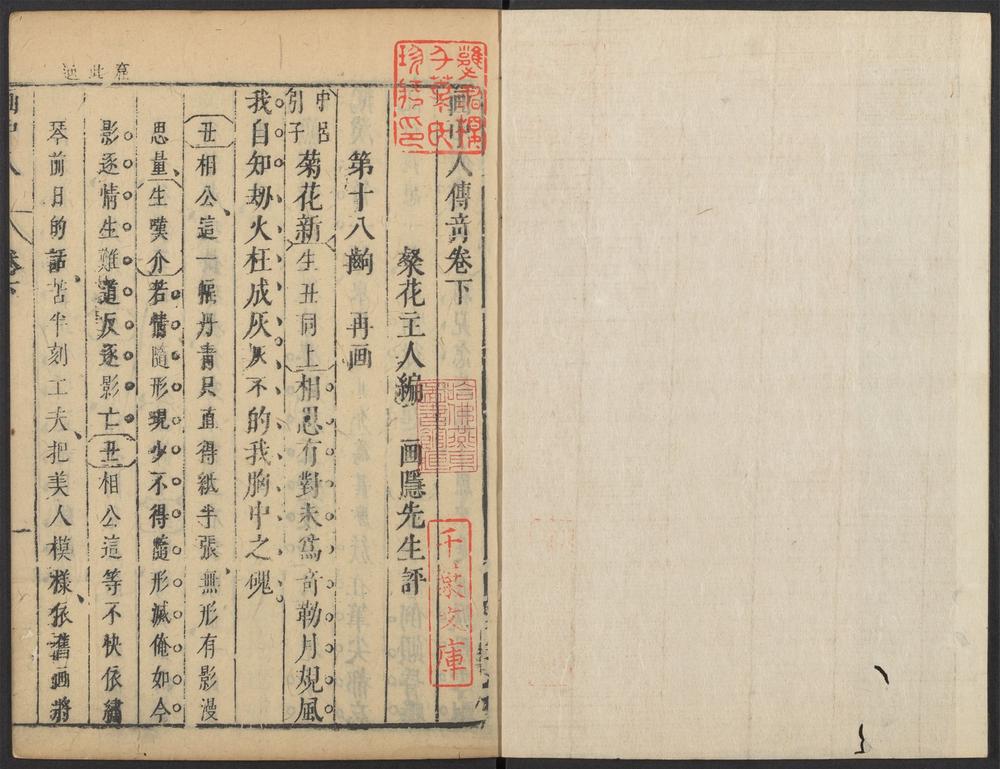 画中人傳竒卷下
粲花主人編　画隱先生評
第十八齣　再画
中呂引子菊花新生丑同上相思有對未爲竒勒月規風
我自知刼火枉成灰灰不的我胸中之磈
丑相公這一幀丹青只直得紙半張無形有影漫
思量生嘆介若情隨形現少不得隨形滅俺如今
影逐情生難道反逐影亡丑相公這等不快依繡
琴前日的話苦半刻工夫把美人模樣依舊画將
卷下
一
千葉文庫